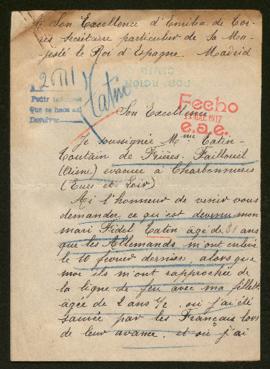 Son Excellence d'Emilia de Tor-
rès Secrétaire particulier de Sa Ma-
jesté le Roi d'Espagne. Madrid
Catin
Pedir informes
Fecho
1917
e.a.e.
Son Excellence
Je soussignée Mme Catin-
de Faillouel
(Aisne) évacuée à Charbonnières
(Eure et Loir)
Ai l'honneur de venir vous
demander ce qu'est devenu mon
mari Fidel Catin âgé de 31 ans
que les Allemands m'ont enlevé
le 10 février dernier, alors que
moi ils m'ont rapprochée de
la ligne de feu avec ma fillette
agée de 2 ans ½. où j'ai été
sauvée par les Français lors
de leur avance. et où j'ai